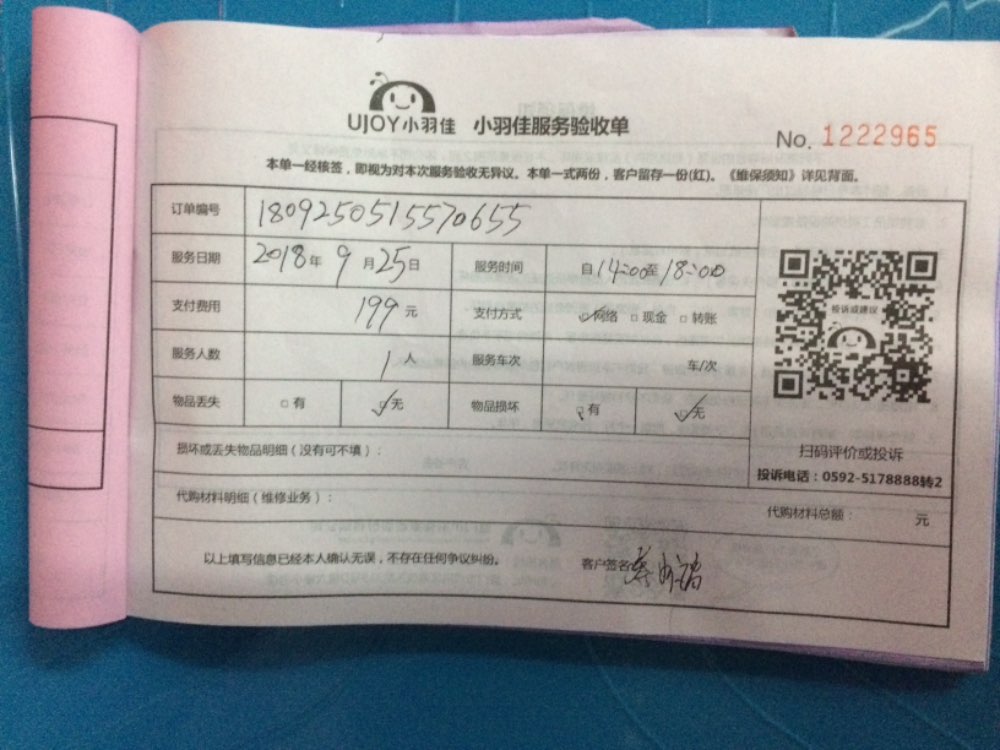 UJOY小羽佳 小羽佳服务验收单
No. 1222965
本单一经核签，即视为对本次服务验收无异议。本单一式两份，客户留存一份(红)。《维保须知》详见背面。
订单编号 1809250515570655
服务日期 2018年9月25日 服务时间 自14:00至18:00
支付费用 199元 支付方式 ☑网络 □现金 □转账
服务人数 1人 服务车次 车/次
物品丢失 □有 ☑无 物品损坏 □有 ☑无
投诉或建议
扫码评价或投诉
投诉电话：0592-5178888转2
损坏或丢失物品明细（没有可不填）：
代购材料明细（维修业务）： 代购材料总额： 元
以上填写信息已经本人确认无误，不存在任何争议纠纷。 客户签名